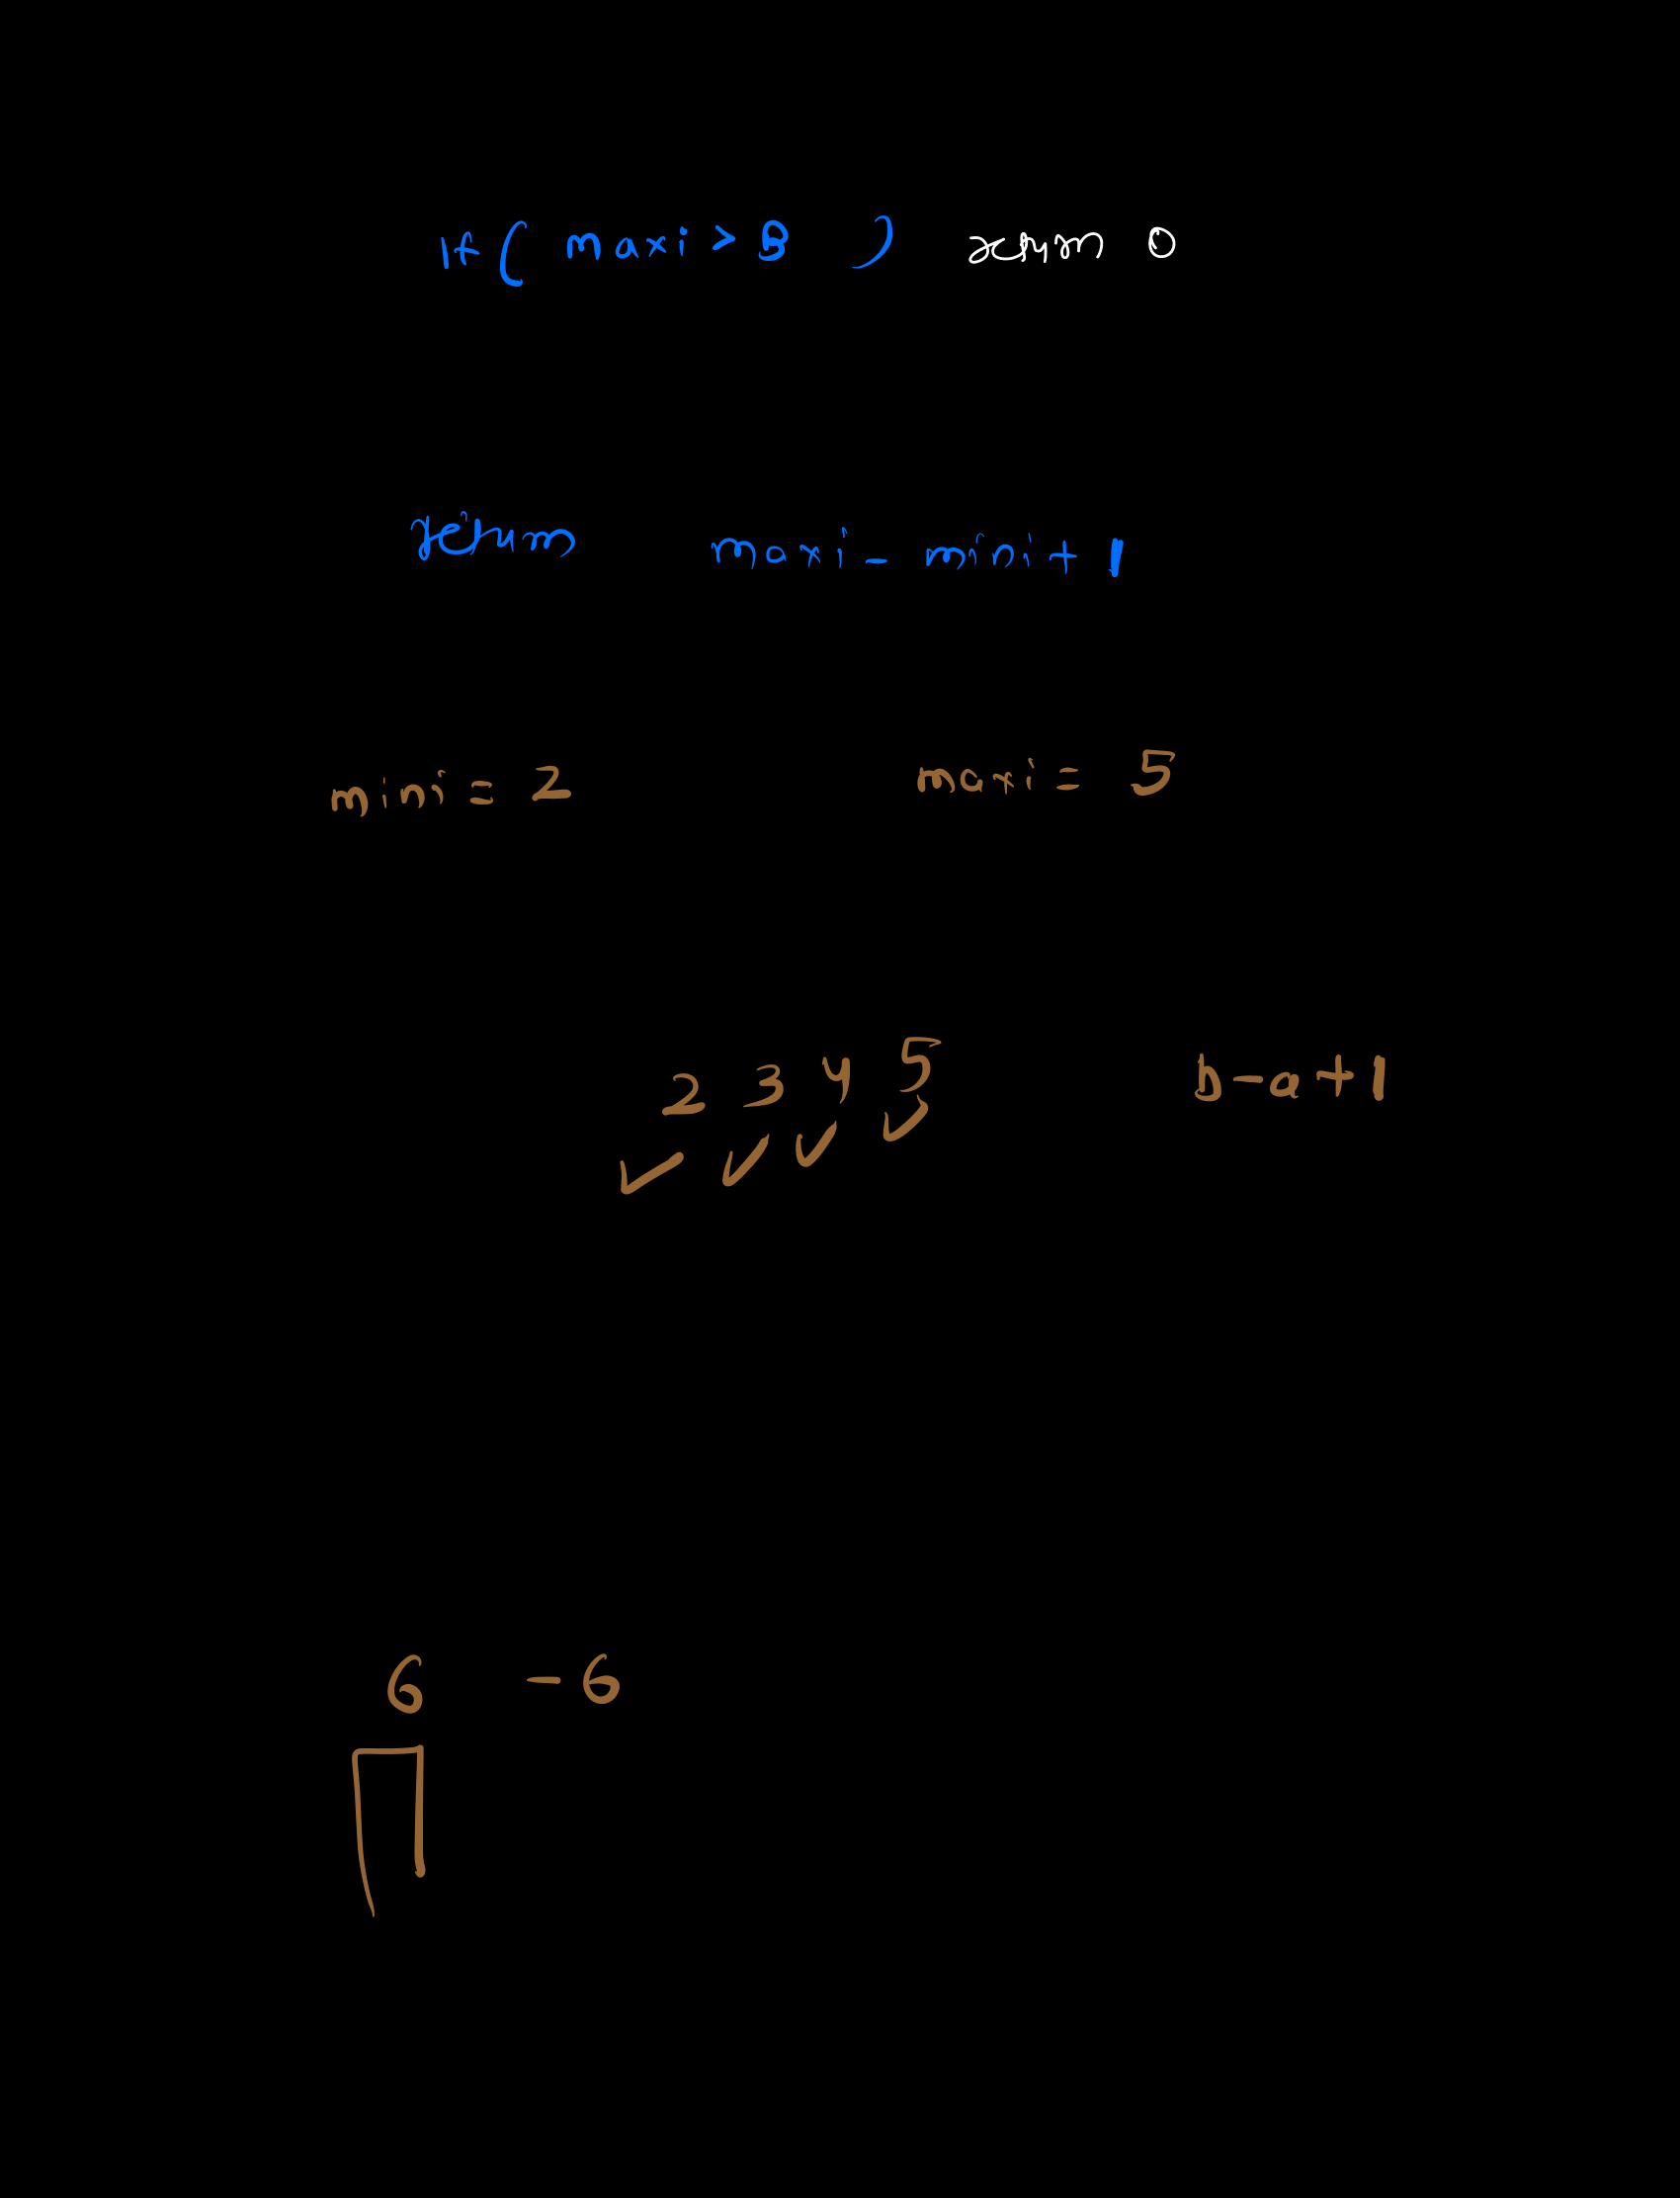 If ( maxi > B ) return 0
return maxi - mini + 1
mini = 2 maxi = 5
2 3 4 5 b - a + 1
6 - 6